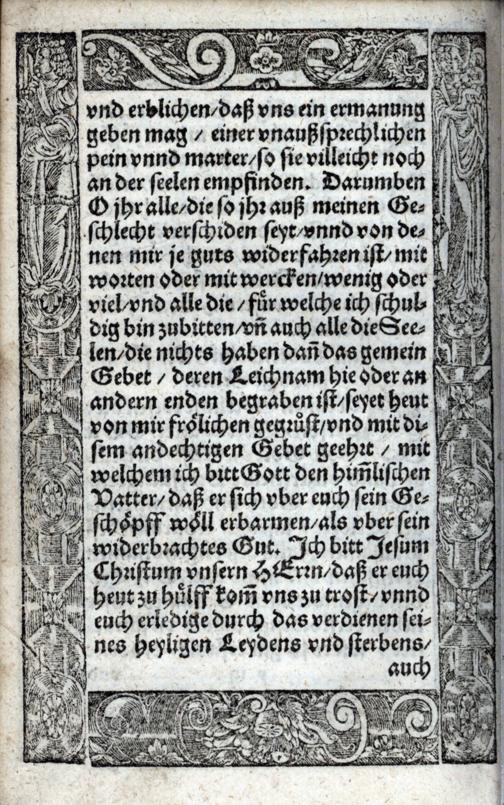 vnd erblichen/daß vns ein ermanung
geben mag / einer vnaußsprechlichen
pein vnnd marter/so sie villeicht noch
an der seelen empfinden. Darumben
O jhr alle/die so jhr auß meinen Ge-
schlecht verschiden seyt/vnnd von de-
nen mir je guts widerfahren ist/ mit
worten oder mit wercken/wenig oder
viel/vnd alle die / für welche ich schul-
dig bin zubitten/vn̄ auch alle die See-
len/die nichts haben dan̄ das gemein
Gebet / deren Leichnam hie oder an
andern enden begraben ist/seyet heut
von mir frölichen gegrůst/vnd mit di-
sem andechtigen Gebet geehrt / mit
welchem ich bitt Gott den him̄lischen
Vatter/daß er sich vber euch sein Ge-
schöpff wöll erbarmen/als vber sein
widerbrachtes Gut. Ich bitt Jesum
Christum vnsern HErrn/daß er euch
heut zu hülff kom̄ vns zu trost/vnnd
euch erledige durch das verdienen sei-
nes heyligen Leydens vnd sterbens/
auch